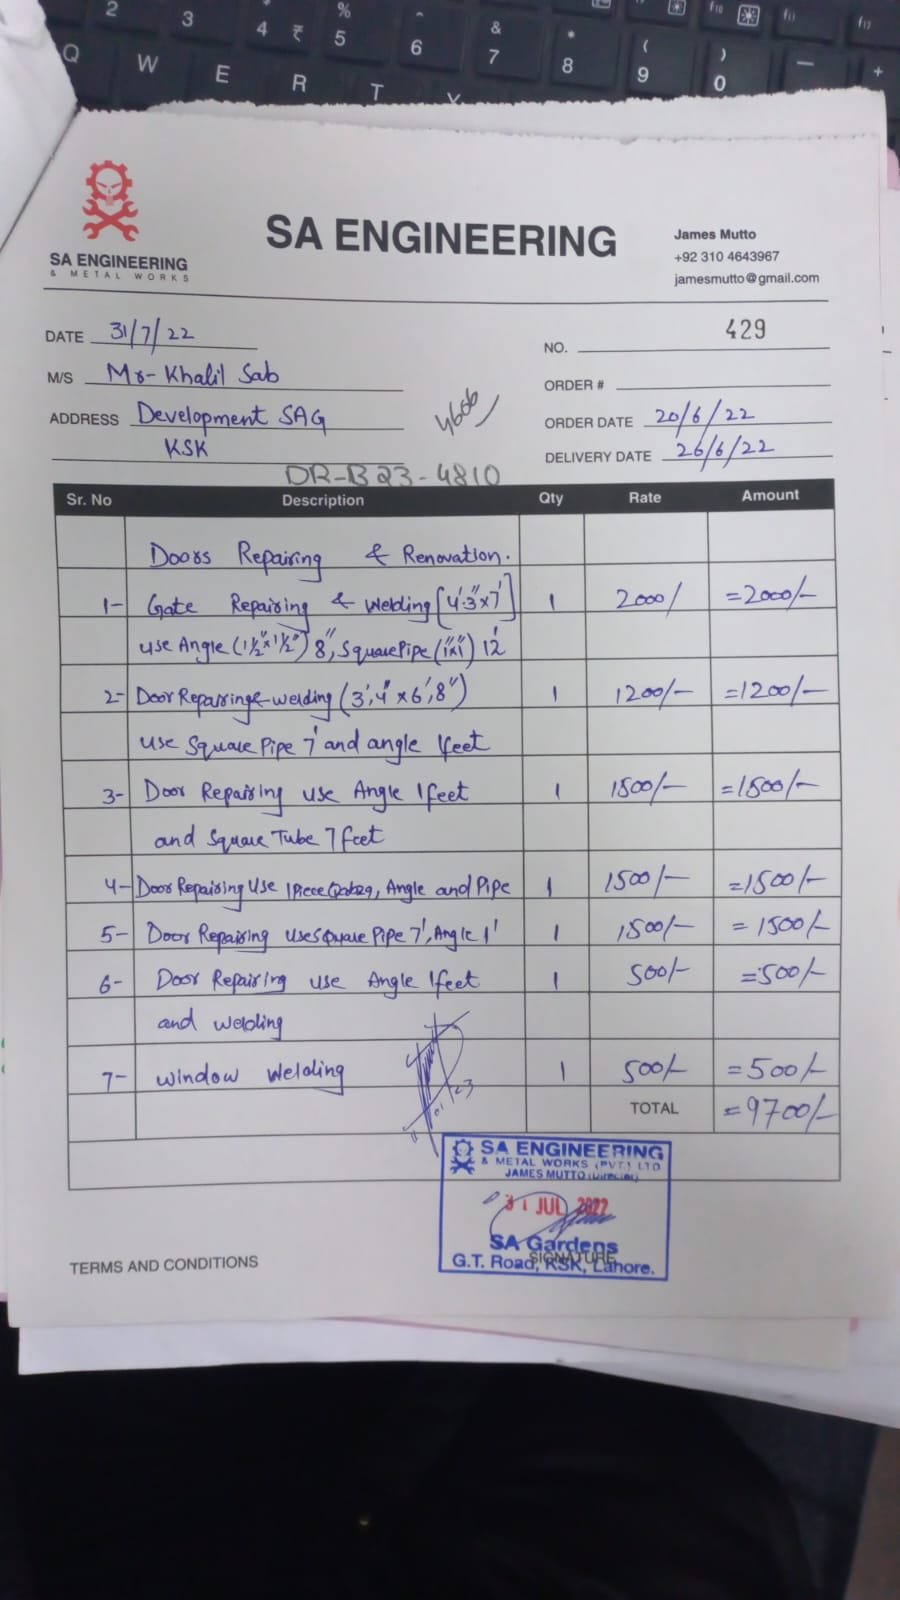 2 3 4 ₹ % 5 ^ 6 & 7 * 8 ( 9 ) 0 — +
f10 f11 f12
Q W E R T Y
SA ENGINEERING
& METAL WORKS
SA ENGINEERING
James Mutto
+92 310 4643967
jamesmutto@gmail.com
DATE 31/7/22
NO. 429
M/S Mr- Khalil Sab
ORDER #
ADDRESS Development SAG
ORDER DATE 20/6/22
KSK
DELIVERY DATE 26/6/22
DR-B23-4810
Sr. No Description Qty Rate Amount
Doors Repairing & Renovation.
1- Gate Repairing & Welding [4'3"x7'] 1 2000/ =2000/-
use Angle (1½"x1½") 8", Square Pipe (1"x1") 12'
2- Door Repairing & welding (3',4"x6',8") 1 1200/- =1200/-
use Square Pipe 7' and angle 1feet
3- Door Repairing use Angle 1feet 1 1500/- =1500/-
and Square Tube 7 feet
4- Door Repairing Use 1 Piece , Angle and Pipe 1 1500/- =1500/-
5- Door Repairing use Square Pipe 7', Angle 1' 1 1500/- =1500/-
6- Door Repairing use Angle 1feet 1 500/- =500/-
and welding
7- window Welding 1 500/- =500/-
TOTAL =9700/-
SA ENGINEERING
& METAL WORKS (PVT.) LTD
JAMES MUTTO (Director)
31 JUL 2022
SA Gardens
SIGNATURE
G.T. Road, KSK, Lahore.
TERMS AND CONDITIONS